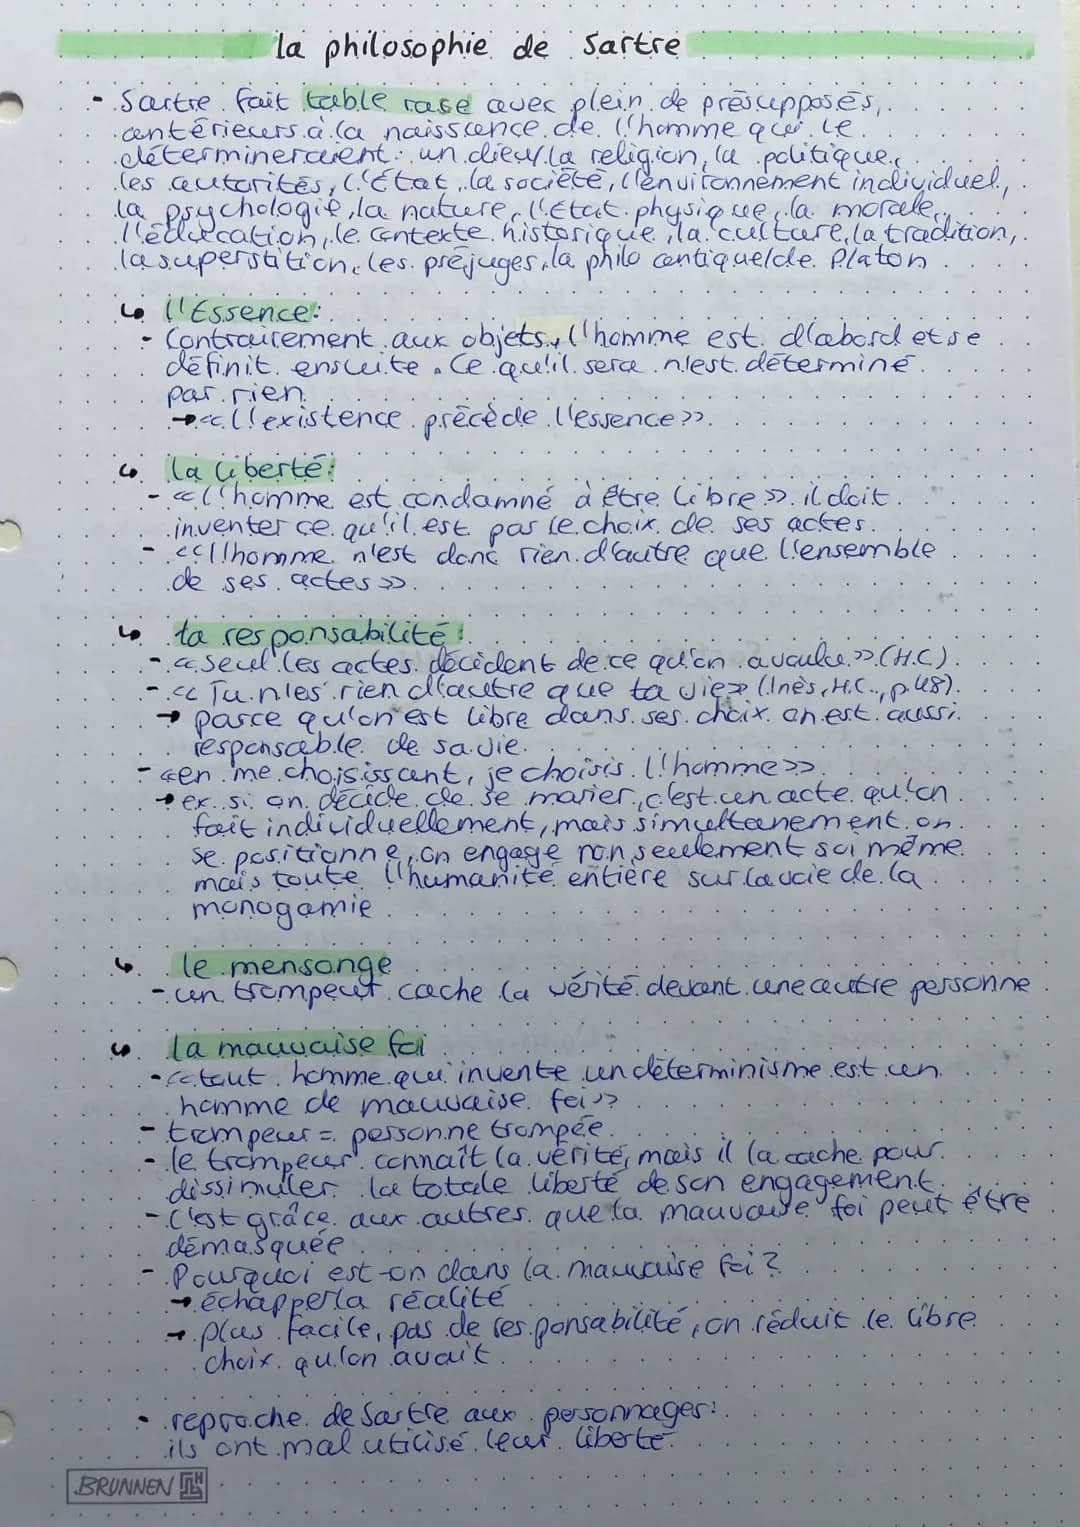 la philosophie de Sartre
- Sartre fait table rase avec plein de présupposés,
antérieurs à la naissance de l'homme qui le
détermineraient: un dieu/la religion, la politique,
les autorités, l'État, la société, l'environnement individuel,
la psychologie, la nature, l'état physique, la morale,
l'éducation, le contexte historique, la culture, la tradition,
la superstition, les préjugés, la philo antique/de Platon
↳ l'Essence:
- Contrairement aux objets, l'homme est d'abord et se
définit ensuite. Ce qu'il sera n'est déterminé
par rien
→ «l'existence précède l'essence».
↳ la liberté:
- «l'homme est condamné à être libre». il doit
inventer ce qu'il est par le choix de ses actes.
- «l'homme n'est donc rien d'autre que l'ensemble
de ses actes».
↳ la responsabilité:
- «Seul les actes décident de ce qu'on a voulu.» (H.C).
- «Tu n'es rien d'autre que ta vie» (Inès, H.C., p.48).
→ parce qu'on est libre dans ses choix on est aussi
responsable de sa vie.
- «en me choisissant, je choisis l'homme».
→ ex. si on décide de se marier, c'est un acte qu'on
fait individuellement, mais simultanement on
se positionne, on engage non seulement soi même
mais toute l'humanité entière sur la voie de la
monogamie
↳ le mensonge
- un trompeur cache la vérité devant une autre personne
↳ la mauvaise foi
- «tout homme qui invente un déterminisme est un
homme de mauvaise foi»
- trompeur = personne trompée
- le trompeur connaît la vérité, mais il la cache pour
dissimuler la totale liberté de son engagement.
- C'est grâce aux autres que la mauvaise foi peut être
démasquée
- Pourquoi est-on dans la mauvaise foi?
→ échapper la réalité
→ plus facile, pas de responsabilité, on réduit le libre
choix qu'on avait
- reproche de Sartre aux personnages:
ils ont mal utilisé leur liberté
BRUNNEN